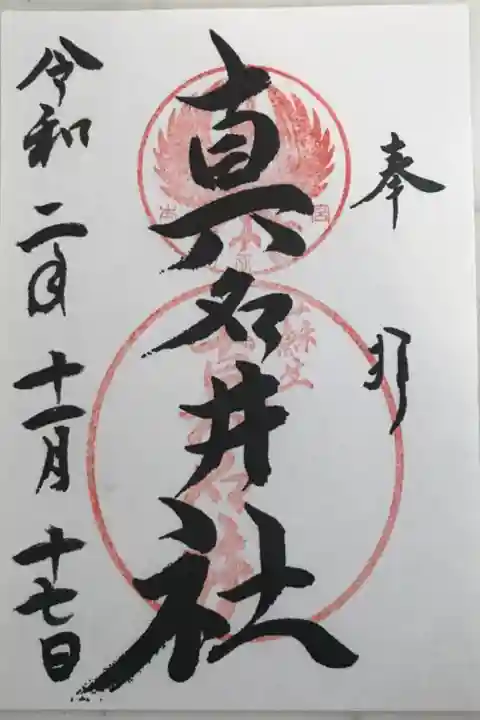 奉拝
真名井社
令和二年十一月十七日